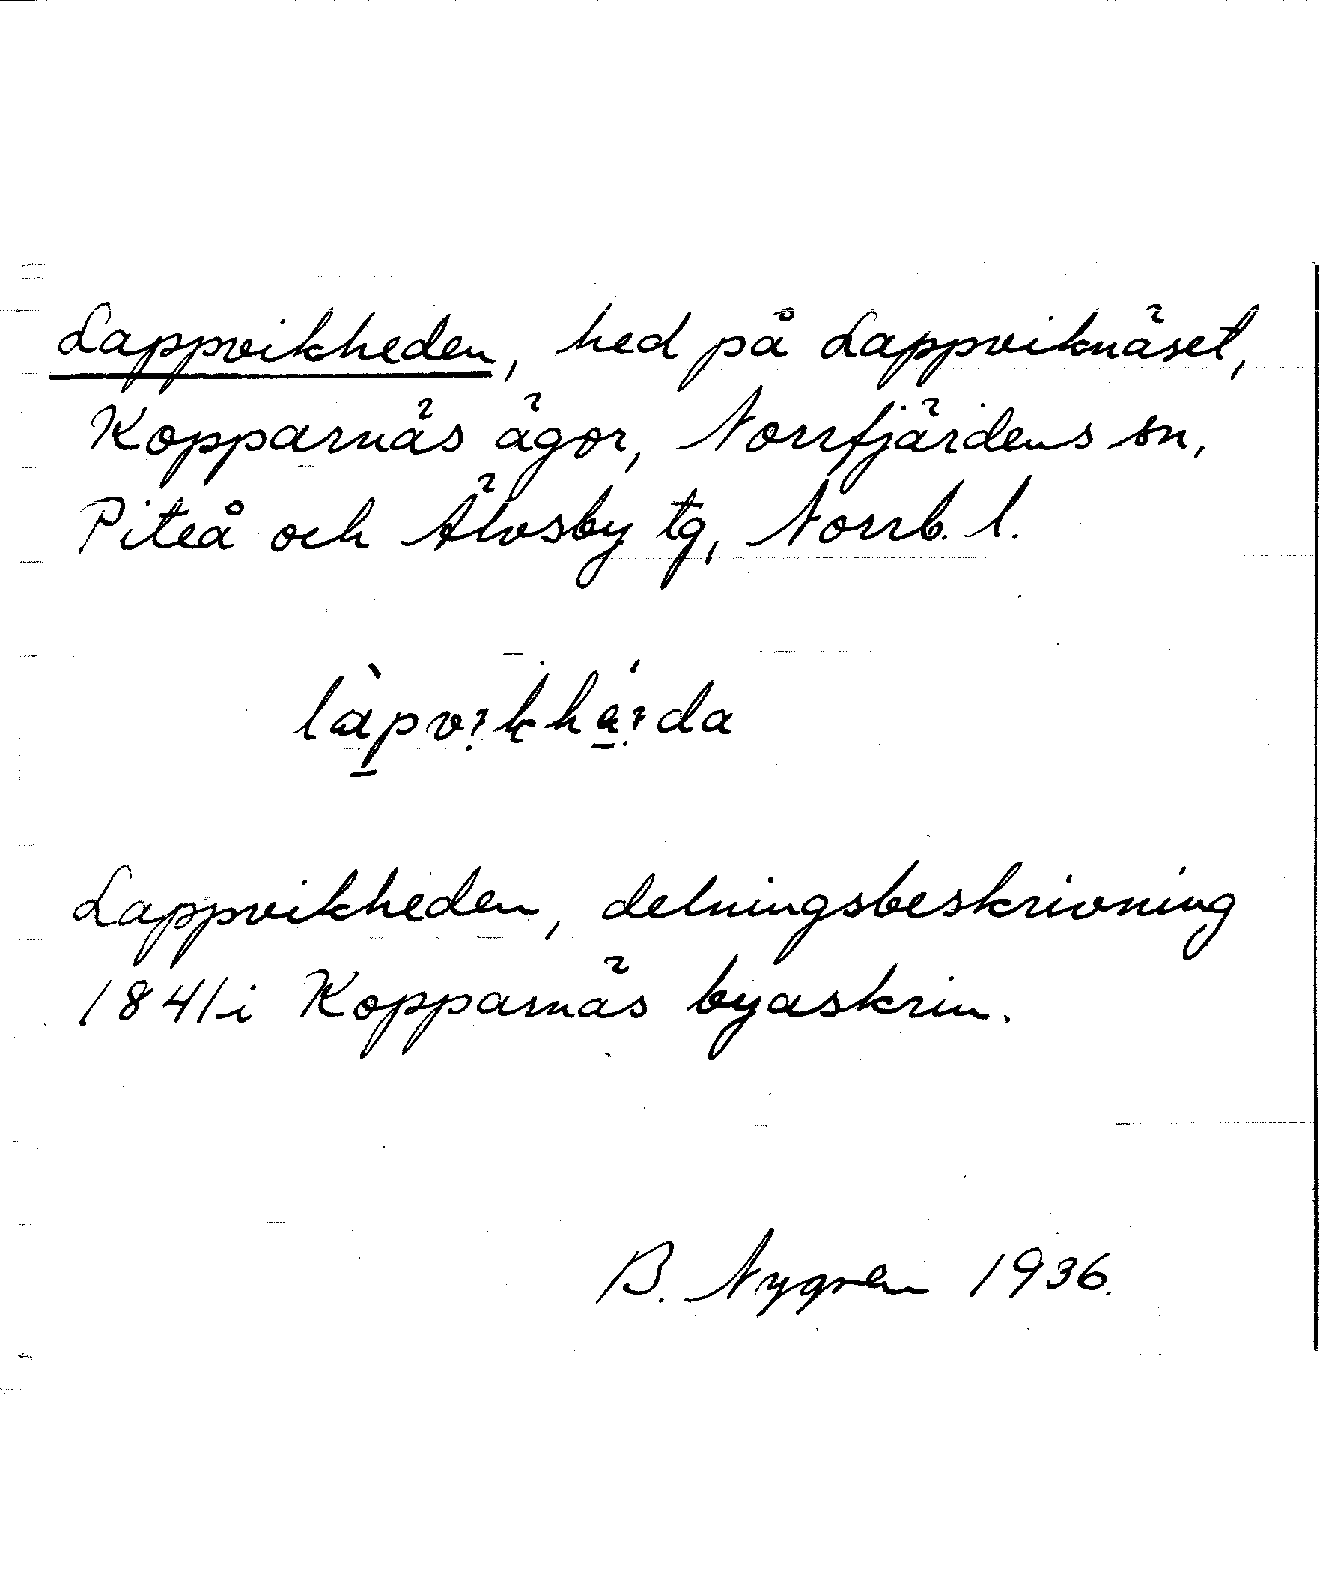 Lappvikheden, hed på Lappviknäset,
Kopparnäs ägor, Norrfjärdens sn,
Piteå och Älvsby tg, Norrb. l.
Lappvikheden, delningsbeskrivning
1841 i Kopparnäs byaskrin.
B. Nygren 1936.